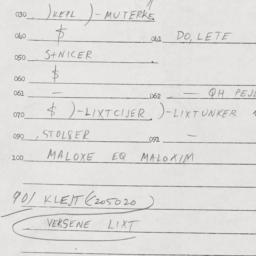 030 )KEPL )-MUTERKE
040 $ 041 DO, LETE
050 S+NICER
060 $
061 — 062 — QH PEJL
070 $ )-LIXTCIJER )-LIXTUNKER
090 .STOLBER 092 —
100 MALOXE EQ MALOXIM
901 KLEJT (205020)
VERSENE LIXT